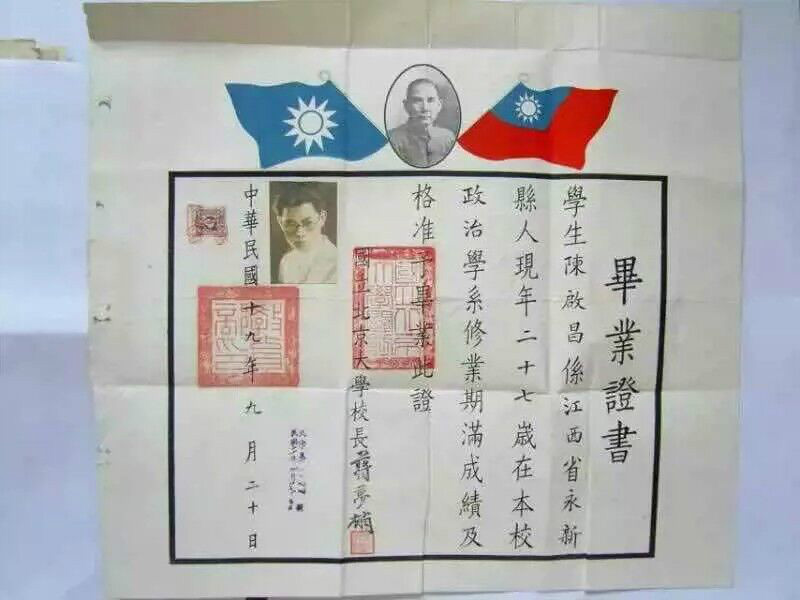 畢業證書
學生陳啟昌係江西省永新
縣人現年二十七歲在本校
政治學系修業期滿成績及
格准予畢業此證
國立北京大學校長蔣夢麟
中華民國十九年九月二十日